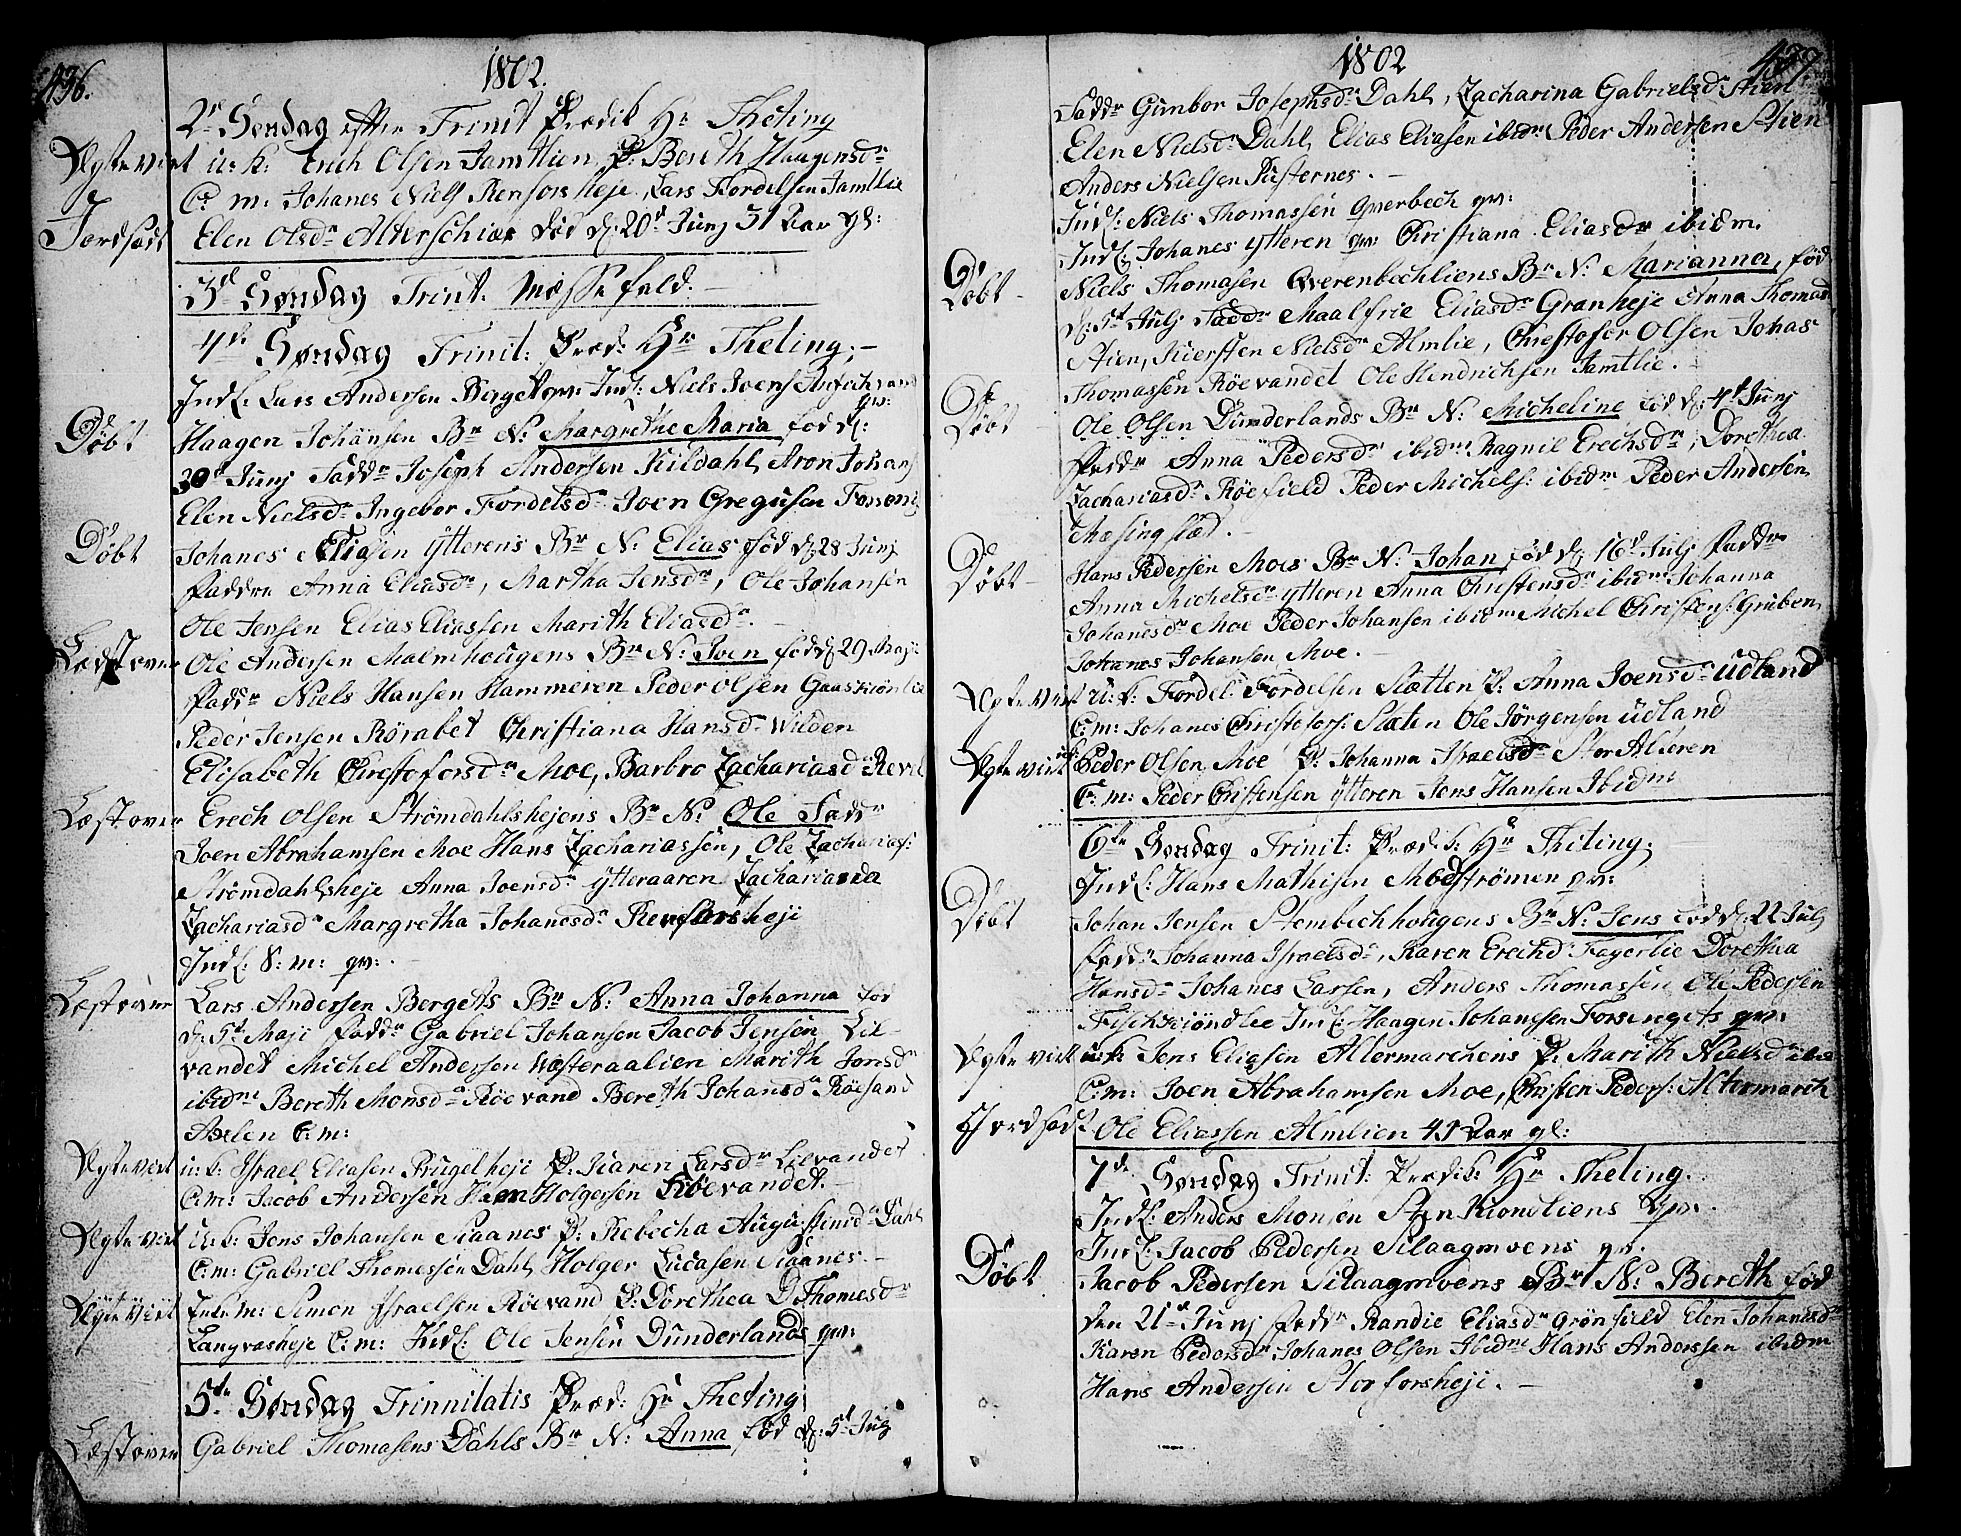 436.
1802.
2d Søndag efter Trinit Prædik Hr Theting
Ægte viet u: k: Erich Olsen Jamtlien P: Bereth Haagensdr
C: m: Johanes Niels Renforsheje, Lars Fordelsen Jamtlie
Jordfæst Elen Olsdr Alterschiær død d: 20d Junj 31 Aar gl:
3d Søndag Trint. Messefald. –
4de Søndag Trinit: Præd: Hr Theting. –
Indl: Lars Andersen Berget qv: Indl: Niels Joens
qv:
Døbt Haagen Johansen Br N: Margrethe Maria fød d:
30d Junj Faddr Joseph Andersen Kildahl, Aron Johans
Elen Nielsdr Ingebor Fordelsdr Joen Gregusen
Døbt Johanes Eliasen Ytterens Br N: Elias fød d: 28 Junj
Faddre Anna Eliasdr, Martha Jensdr, Ole Johansen
Ole Jensen Elias Eliassen Marith Eliasdr. –
Læst over Ole Andersen Malmhougens Br N: Joen fød d: 29 Maji
Faddr Niels Hansen Hammeren Peder Olsen
Peder Jensen Rørabet Christiana Hansdr Wilden
Elisabeth Christofersdr Moe, Barbro Zachariasdr
Læst over Erech Olsen Strømdahlshejens Br N: Ole Faddr
Joen Abrahamsen Moe Hans Zachariassen, Ole Zacharias:
Strømdahlsheje Anna Joensdr Ytteraaren
Zachariasdr Margretha Johanesdr Renforsheji
Indl: S: m: qv: .
Læst over Lars Andersen Bergets Br N: Anna Johanna fød
d: 5d Maji Faddr Gabriel Johansen Jacob Jensen Lil-
vandet Michel Andersen Westeraalien Marith Jonsdr
ibidm Bereth Monsdr Røevand Bereth Johansdr Røesand
Axlen C: m:
Ægte viet u: k: Israel Eliasen Frugelheje P: Karen Larsdr Lilvandet
C: m: Jacob Andersen Holgersen Røevandet. –
Ægte viet u: k: Jens Johansen Skaanes P: Rebecha Augustinusdr Dahl
C: m: Gabriel Thomessen Dahl, Holger Lucasen Skaanes. –
Ægte viet Enk: m: Simon Israelsen Røevand P: Dorethea D: Thomesdr
Langvasheje C: m: Indl: Ole Jensen Dunderlands qv:
5te Søndag Trinnitatis Præd: Hr Theting
Læst over Gabriel Thomasens Dahls Br N: Anna fød d: 5d Julj
437.
1802
Faddr Gunbor Josephsdr Dahl, Zacharina Gabrielsdr Stien
Elen Nielsdr Dahl, Elias Eliasen ibidm Peder Andersen Stien
Anders Nielsen Rusternes. –
Indl: Niels Thomassen Qverbech qv:
Indl: Johanes Ytteren qv: Christiana Eliasdr ibidm.
Døbt – Niels Thomasen Qverenbechliens Br N: Marianna, fød
d: 5d Julj Faddr Maalfrie Eliasdr Granheje Anna Thomasd
Stien, Kiersten Nielsdr Almlie, Christofer Olsen Johas
Thomassen Røevandet Ole Hendrichsen Jamtlie. –
Døbt – Ole Olsen Dunderlands Br N: Micheline fød d: 4d Junj
Faddr Anna Pedersdr ibidm Ragnil Erechsdr, Dorethea
Zachariasdr Røefield Peder Michels: ibidm Peder Andersen
Mesingslæd. –
Døbt – Hans Pedersen Moes Br N: Johan, fød d: 16d Julj Faddre
Anna Michelsdr Ytteren Anna Christensdr ibidm Johanna
Johanesdr Moe Peder Johansen ibidm Michel Christens: Gruben
Johanes Johansen Moe. –
Ægte viet u: k: Fordel Fordelsen Slætten P: Anna Joensdr Udland
C: m: Johanes Christofers: Slæten Ole Jørgensen Udland
Ægte viet Peder Olsen Moe P: Johanna Israelsdr Stor Alteren
C: m: Peder Cristensen Ytteren Jens Hansen Ibidm
6te Søndag Trinit: Prædik: Hr Theting.
Indl: Hans Mathisen Modstrømen qv:
Døbt Johan Jensen Stembechhougens Br N: Jens fød d: 22 Julj
Faddr Johanna Israelsdr, Karen Erechsd Fagerlie Dorethea
Hansdr Johanes Larsen, Anders Thomassen Ole Pedersen
Fischtiøndlie Indl: Haagen Johansen Forsengets qv:
Ægte viet u: k: Jens Eliasen Altermarchens P: Marith Nielsdr ibid
C: m: Joen Abrahamsen Moe, Christen Peders: Altermarch
Jordfæst Ole Eliassen Almlien 41 Aar gl:
7de Søndag Trinit: Prædik: Hr Theting.
Indl: Anders Monsen Stenkiondliens qv: .
Indl: Jacob Pedersen Selaagmoens qv.
Døbt Jacob Pedersen Selaagmoens Br N: Bereth fød
den 21d Junj Faddr Randie Eliasdr Grønfield Elen Johanesdr
Karen Pedersdr Johanes Olsen Ibidm Hans Anderssen ibidm
Hans Andersen Storforsheji. –